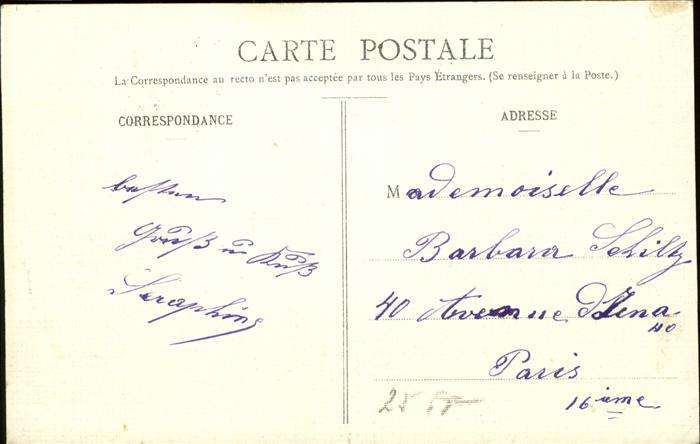 CARTE POSTALE
La Correspondance au recto n'est pas acceptée par tous les Pays Étrangers. (Se renseigner à la Poste.)
CORRESPONDANCE
besten
Gruß u Kuß
Seraphine
ADRESSE
Mademoiselle
Barbara Schiltz
40 Avenue d'Iena
40
Paris
16ième
25